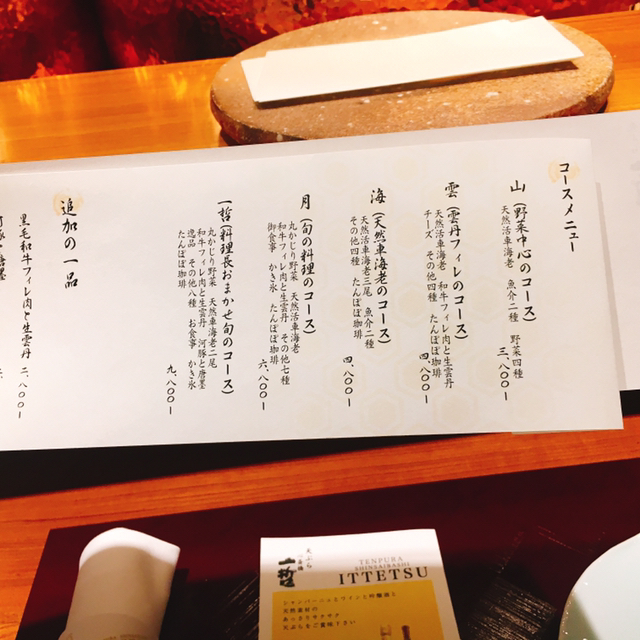 コースメニュー
山(野菜中心のコース)
天然活車海老 魚介二種 野菜四種
三、八〇〇ー
雲(雲丹フィレのコース)
天然活車海老 和牛フィレ肉と生雲丹
チーズ その他四種 たんぽぽ珈琲
四、八〇〇ー
海(天然車海老のコース)
天然活車海老三尾 魚介二種
その他四種 たんぽぽ珈琲
四、八〇〇ー
月(旬の料理のコース)
丸かじり野菜 天然活車海老
和牛フィレ肉と生雲丹 その他七種
御食事 かき氷 たんぽぽ珈琲
六、八〇〇ー
一哲(料理長おまかせ旬のコース)
丸かじり野菜 天然活車海老二尾
和牛フィレ肉と生雲丹 河豚と唐墨
逸品 その他八種 お食事 かき氷
たんぽぽ珈琲
九、八〇〇ー
追加の一品
黒毛和牛フィレ肉と生雲丹 二、八〇〇ー
天ぷら
一哲
TENPURA
SHINSAIBASHI
ITTETSU
シャンパーニュとワインと吟醸酒と
天然素材の
あっさりサクサク
天ぷらをご賞味下さい